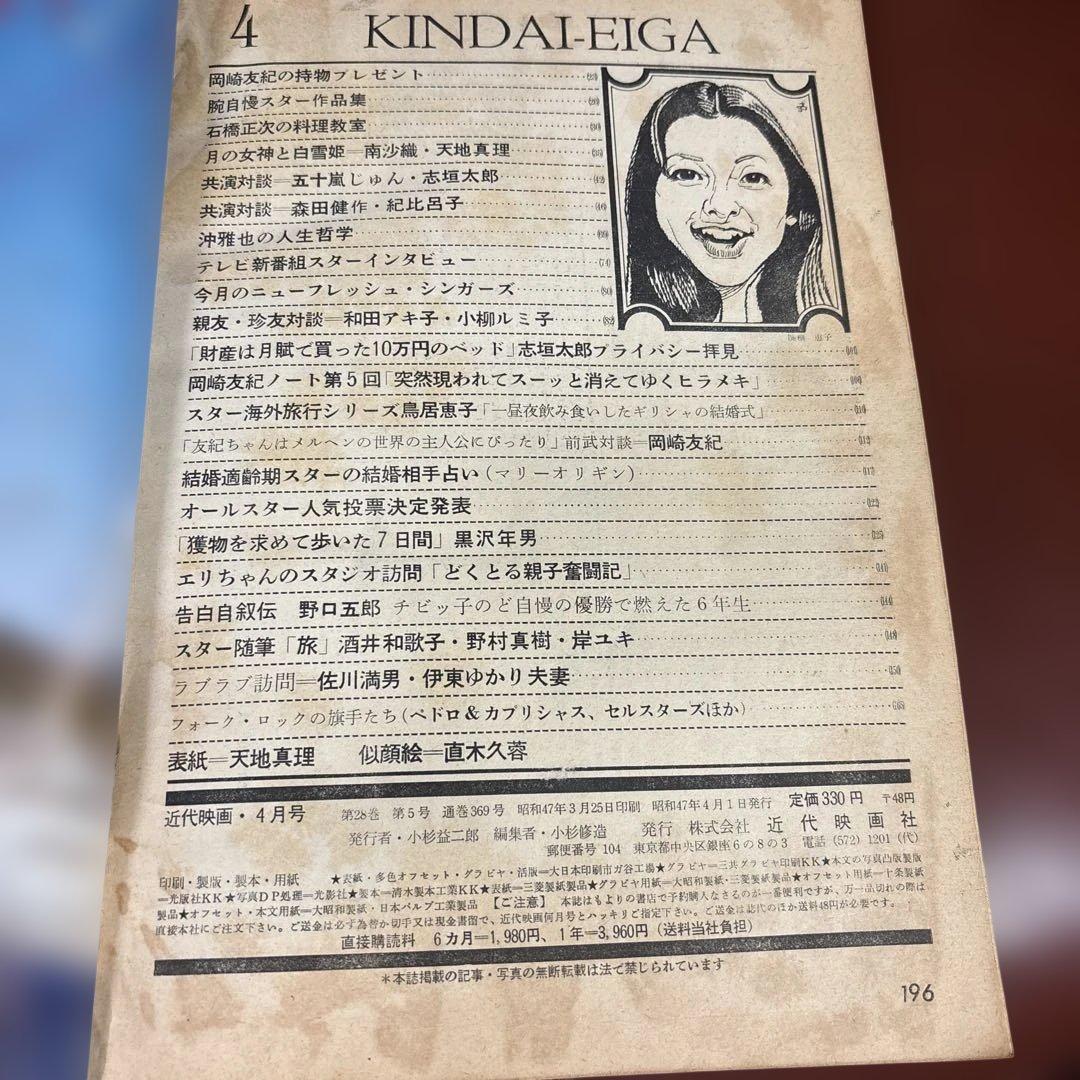 4 KINDAI-EIGA
岡崎友紀の持物プレゼント
腕自慢スター作品集
石橋正次の料理教室
月の女神と白雪姫＝南沙織・天地真理
共演対談＝五十嵐じゅん・志垣太郎
共演対談＝森田健作・紀比呂子
沖雅也の人生哲学
テレビ新番組スターインタビュー (74)
今月のニューフレッシュ・シンガーズ (80)
親友・珍友対談＝和田アキ子・小柳ルミ子 (82)
恵子
「財産は月賦で買った10万円のベッド」志垣太郎プライバシー拝見
岡崎友紀ノート第5回「突然現われてスーッと消えてゆくヒラメキ」
スター海外旅行シリーズ鳥居恵子「一昼夜飲み食いしたギリシャの結婚式」
「友紀ちゃんはメルヘンの世界の主人公にぴったり」前武対談＝岡崎友紀
結婚適齢期スターの結婚相手占い（マリーオリギン）
オールスター人気投票決定発表
「獲物を求めて歩いた7日間」黒沢年男
エリちゃんのスタジオ訪問「どくとる親子奮闘記」
告白自叙伝 野口五郎 チビッ子のど自慢の優勝で燃えた6年生
スター随筆「旅」酒井和歌子・野村真樹・岸ユキ
ラブラブ訪問＝佐川満男・伊東ゆかり夫妻
フォーク・ロックの旗手たち（ペドロ＆カプリシャス、セルスターズほか）
表紙＝天地真理 似顔絵＝直木久蓉
近代映画・4月号 第28巻 第5号 通巻369号 昭和47年3月25日印刷 昭和47年4月1日発行 定価330円 〒48円
発行者・小杉益二郎 編集者・小杉修造 発行 株式会社 近代映画社
郵便番号 104 東京都中央区銀座6の8の3 電話 (572) 1201 (代)
印刷・製版・製本・用紙 ★表紙・多色オフセット・グラビヤ・活版＝大日本印刷市ガ谷工場★グラビヤ＝三共グラビヤ印刷KK★本文の写真凸版製版
＝光版社KK★写真DP処理＝光影社★製本＝清木製本工業KK★表紙＝三菱製紙製品★グラビヤ用紙＝大昭和製紙・三菱製紙製品★オフセット用紙＝十条製紙
製品★オフセット・本文用紙＝大昭和製紙・日本パルプ工業製品 【ご注意】 本誌はもよりの書店で予約購入なさるのが一番便利ですが、万一品切れの際は
直接本社にご注文下さい。ご送金は必ず為替か切手又は現金書留で、近代映画何月号とハッキリご指定下さい。ご送金は誌代のほか送料48円が必要です。
直接購読料 6カ月＝1,980円、1年＝3,960円（送料当社負担）
＊本誌掲載の記事・写真の無断転載は法で禁じられています
196